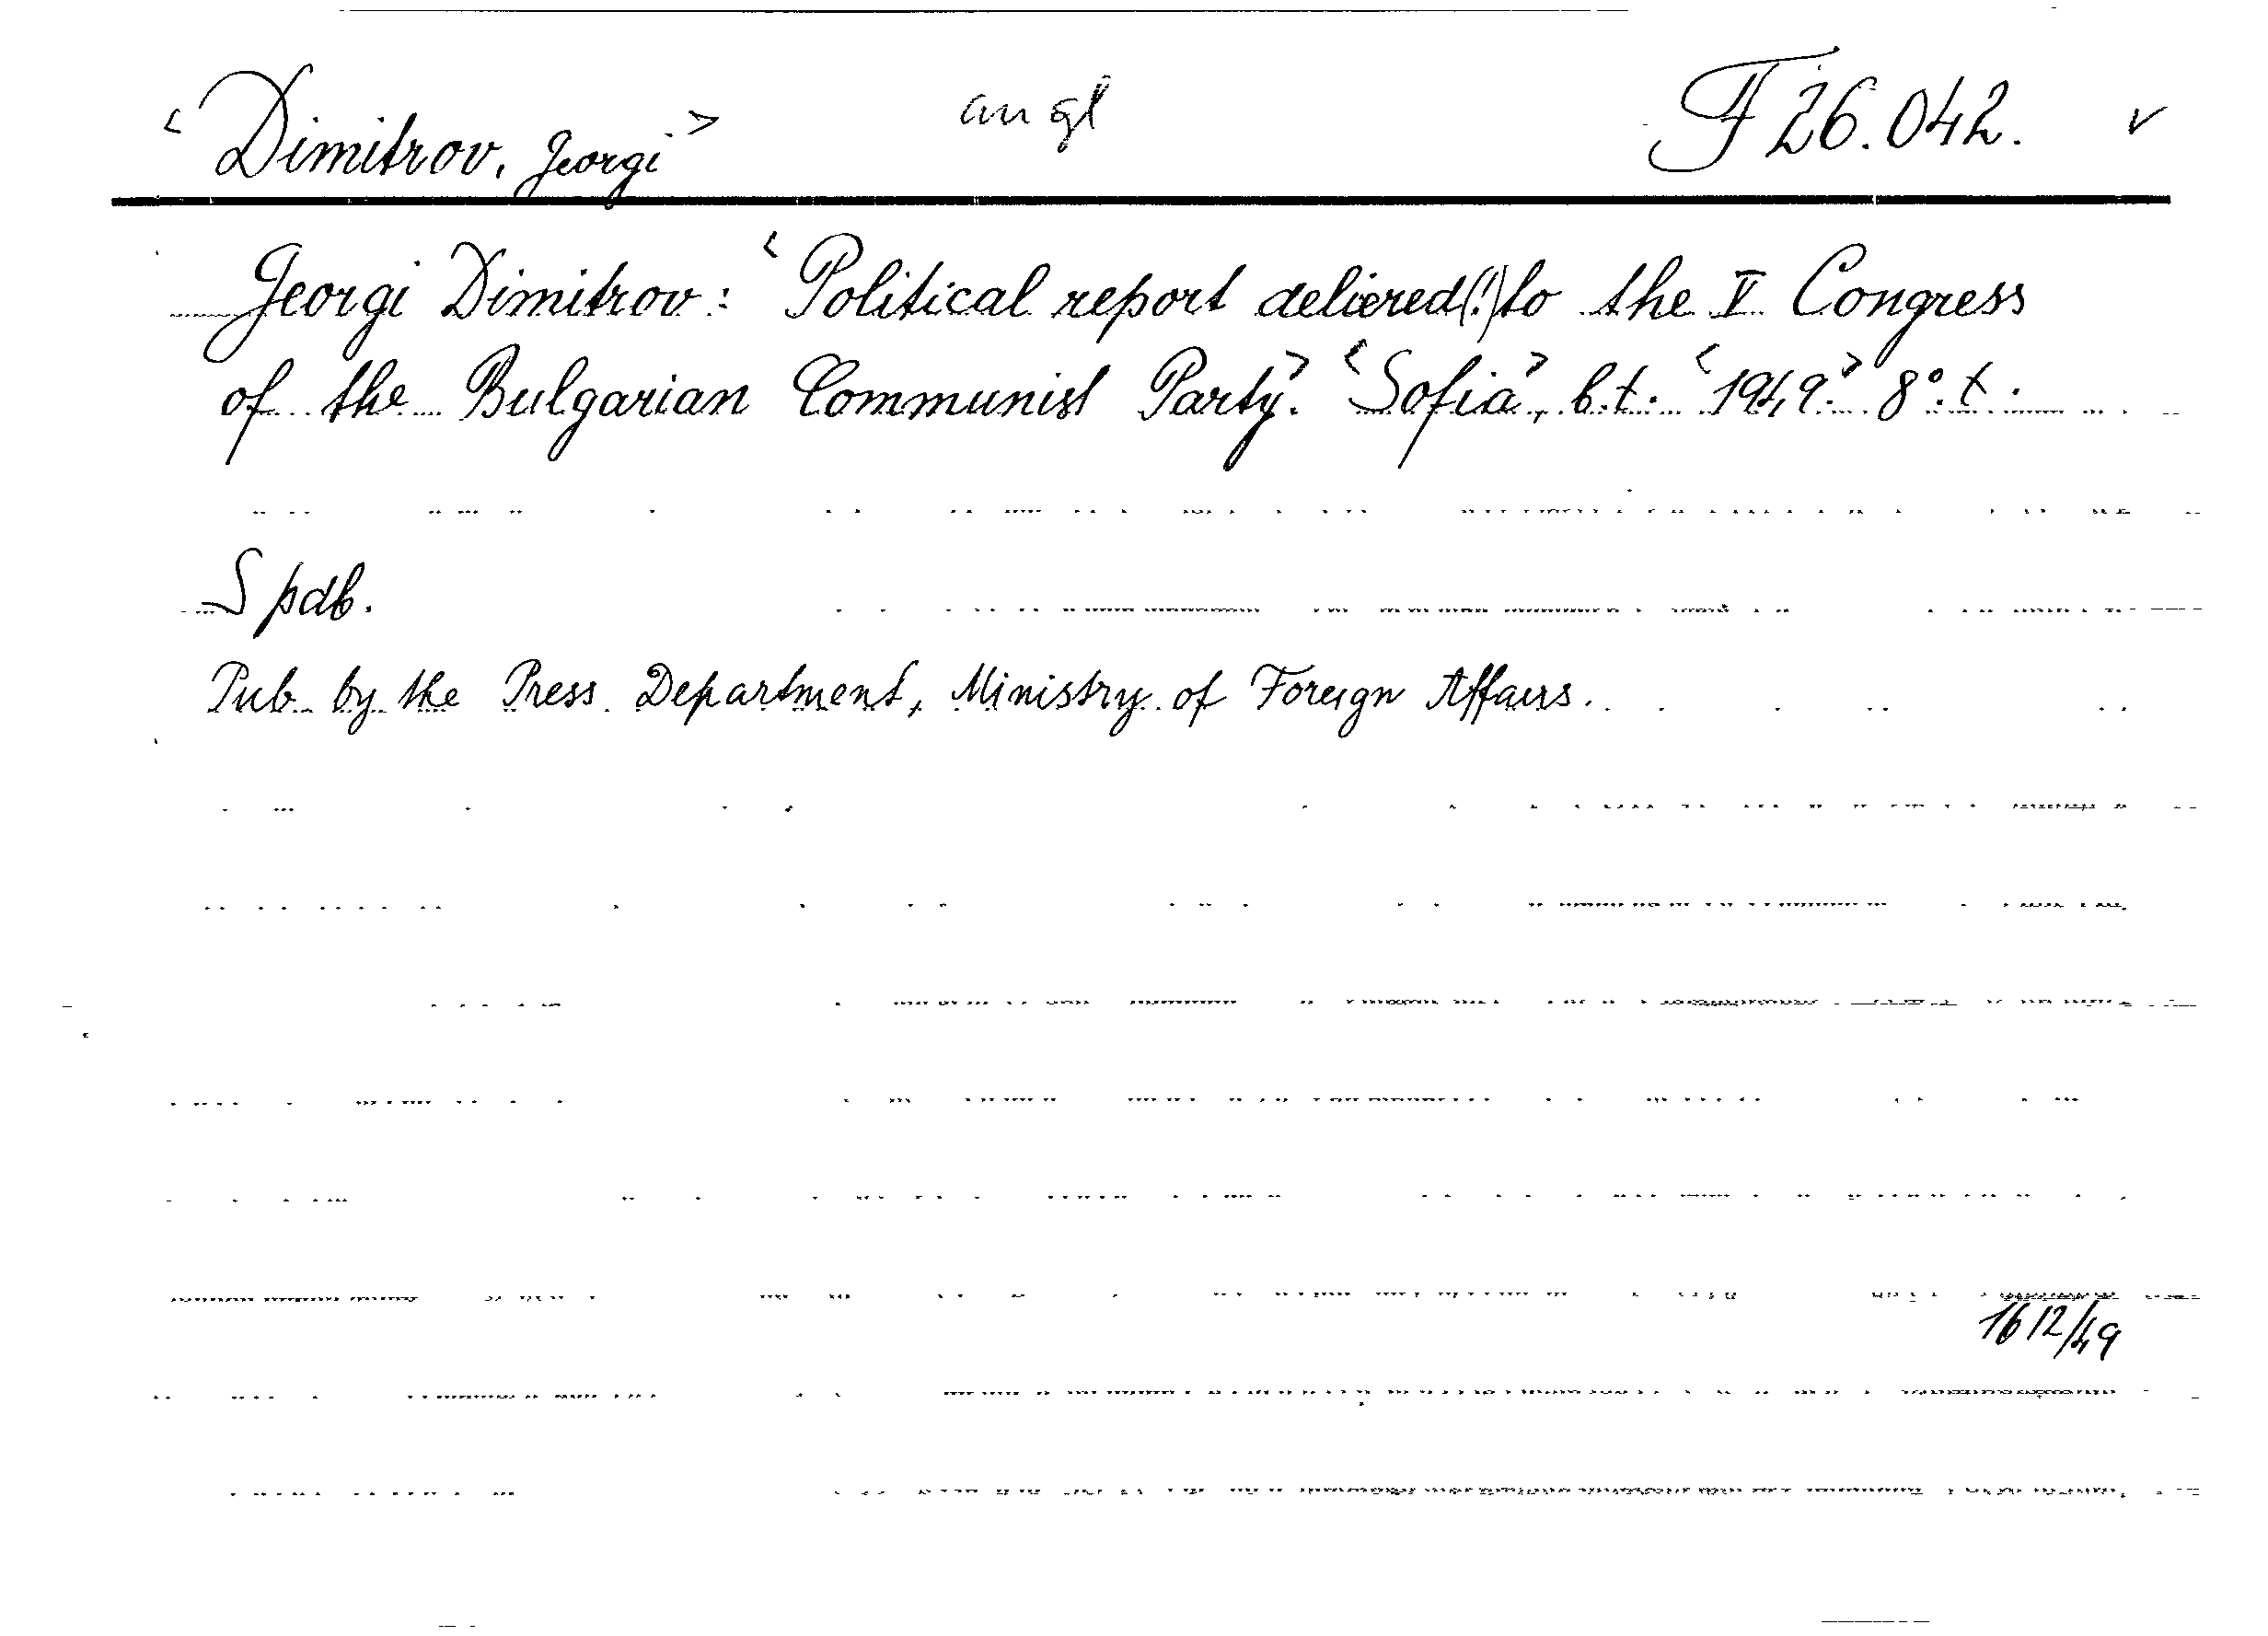 <Dimitrov, Georgi> angl F 26.042. v
Georgi Dimitrov: <Political report deliered(!) to the V Congress
of the Bulgarian Communist Party>. <Sofia>, b.t. <1949>. 8°. t.
S pdb.
Pub by the Press Department, Ministry of Foreign Affairs.
1612/49